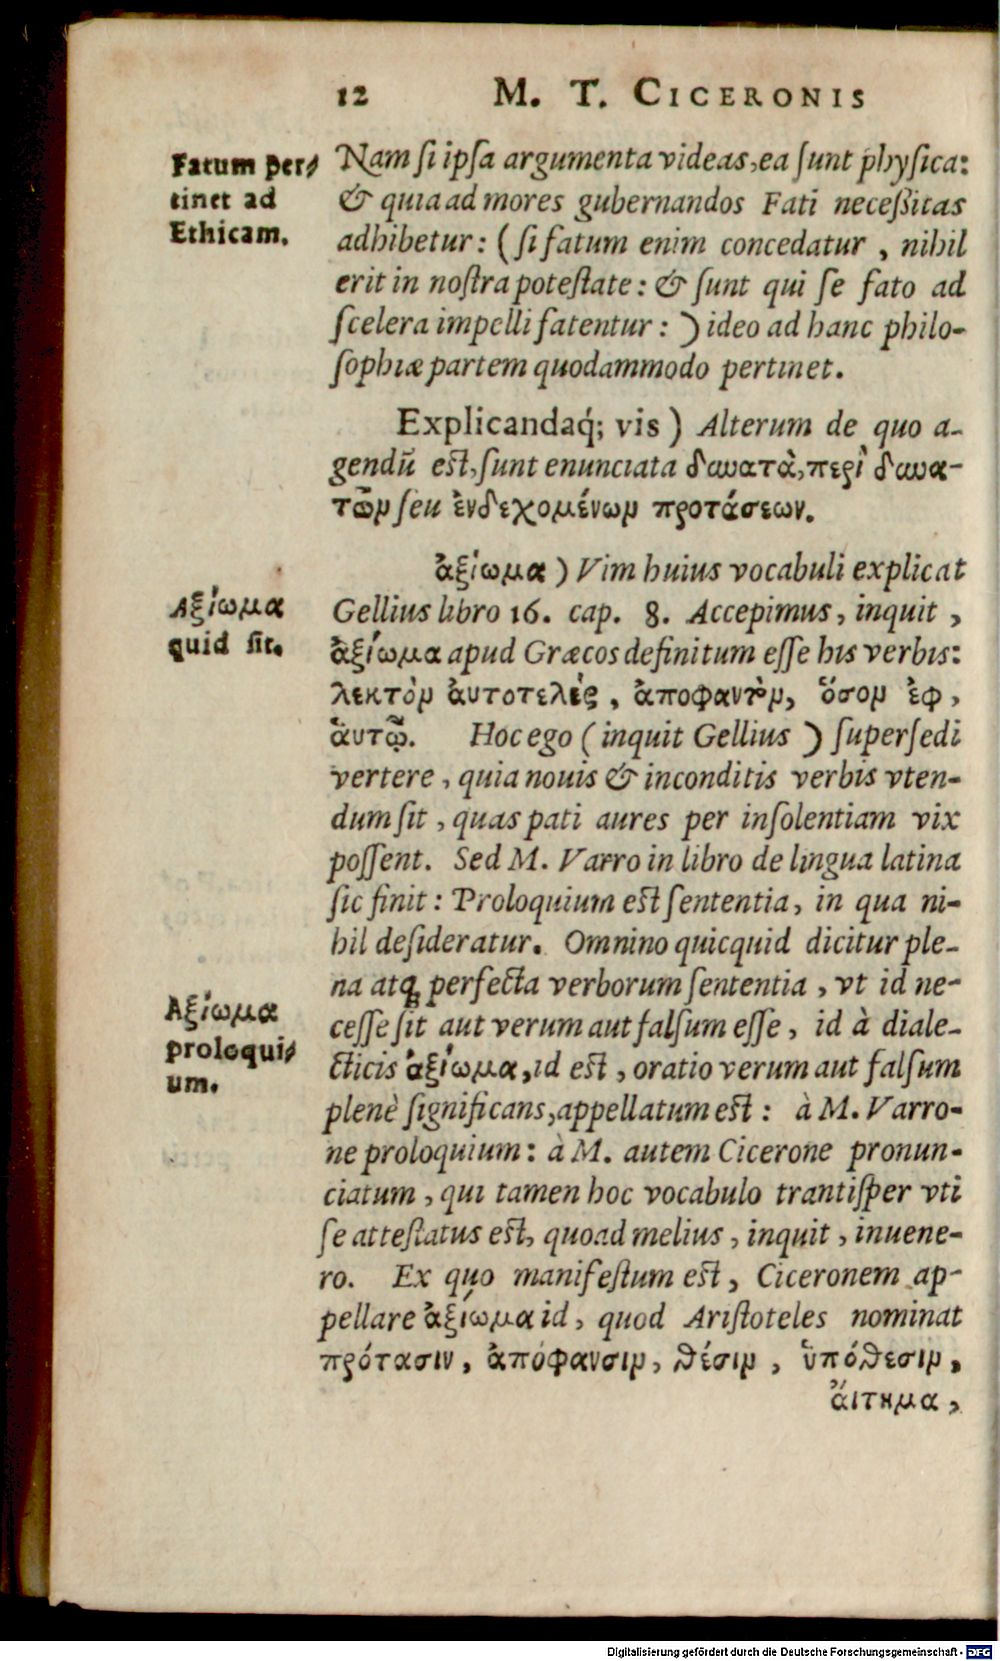 12 M. T. CICERONIS
Fatum per⸗
tinet ad
Ethicam.
Nam ſi ipſa argumenta videas, ea ſunt phyſica:
& quia ad mores gubernandos Fati neceſsitas
adhibetur: ( ſi fatum enim concedatur , nihil
erit in noſtra poteſtate: & ſunt qui ſe fato ad
ſcelera impelli fatentur: ) ideo ad hanc philo-
ſophiæ partem quodammodo pertinet.
Explicandaq́; vis ) Alterum de quo a-
gendū eſt, ſunt enunciata δυνατὰ, περὶ δυνα-
τῶν ſeu ἐνδεχομένων προτάσεων.
ἀξίωμα ) Vim huius vocabuli explicat
Αξίωμα
quid ſit.
Gellius libro 16. cap. 8. Accepimus, inquit ,
ἀξίωμα apud Græcos definitum eſſe his verbis:
λεκτὸν ἀυτοτελές , ἀποφαντὸν, ὅσον ἐφ ,
ἁυτῷ. Hoc ego ( inquit Gellius ) ſuperſedi
vertere , quia nouis & inconditis verbis vten-
dum ſit , quas pati aures per inſolentiam vix
poſſent. Sed M. Varro in libro de lingua latina
ſic finit: Proloquium eſt ſententia, in qua ni-
hil deſideratur. Omnino quicquid dicitur ple-
na atq; perfecta verborum ſententia , vt id ne-
Αξίωμα
proloqui⸗
um.
ceſſe ſit aut verum aut falſum eſſe , id à diale-
cticis ἀξίωμα, id eſt , oratio verum aut falſum
plenè ſignificans, appellatum eſt: à M. Varro-
ne proloquium: à M. autem Cicerone pronun-
ciatum , qui tamen hoc vocabulo trantiſper vti
ſe atteſtatus eſt, quoad melius , inquit , inuene-
ro. Ex quo manifeſtum eſt, Ciceronem ap-
pellare ἀξίωμα id , quod Ariſtoteles nominat
πρότασιν , ἀπόφανσιν, θέσιν , ὑπόθεσιν,
ἄιτημα,
Digitalisierung gefördert durch die Deutsche Forschungsgemeinschaft - DFG